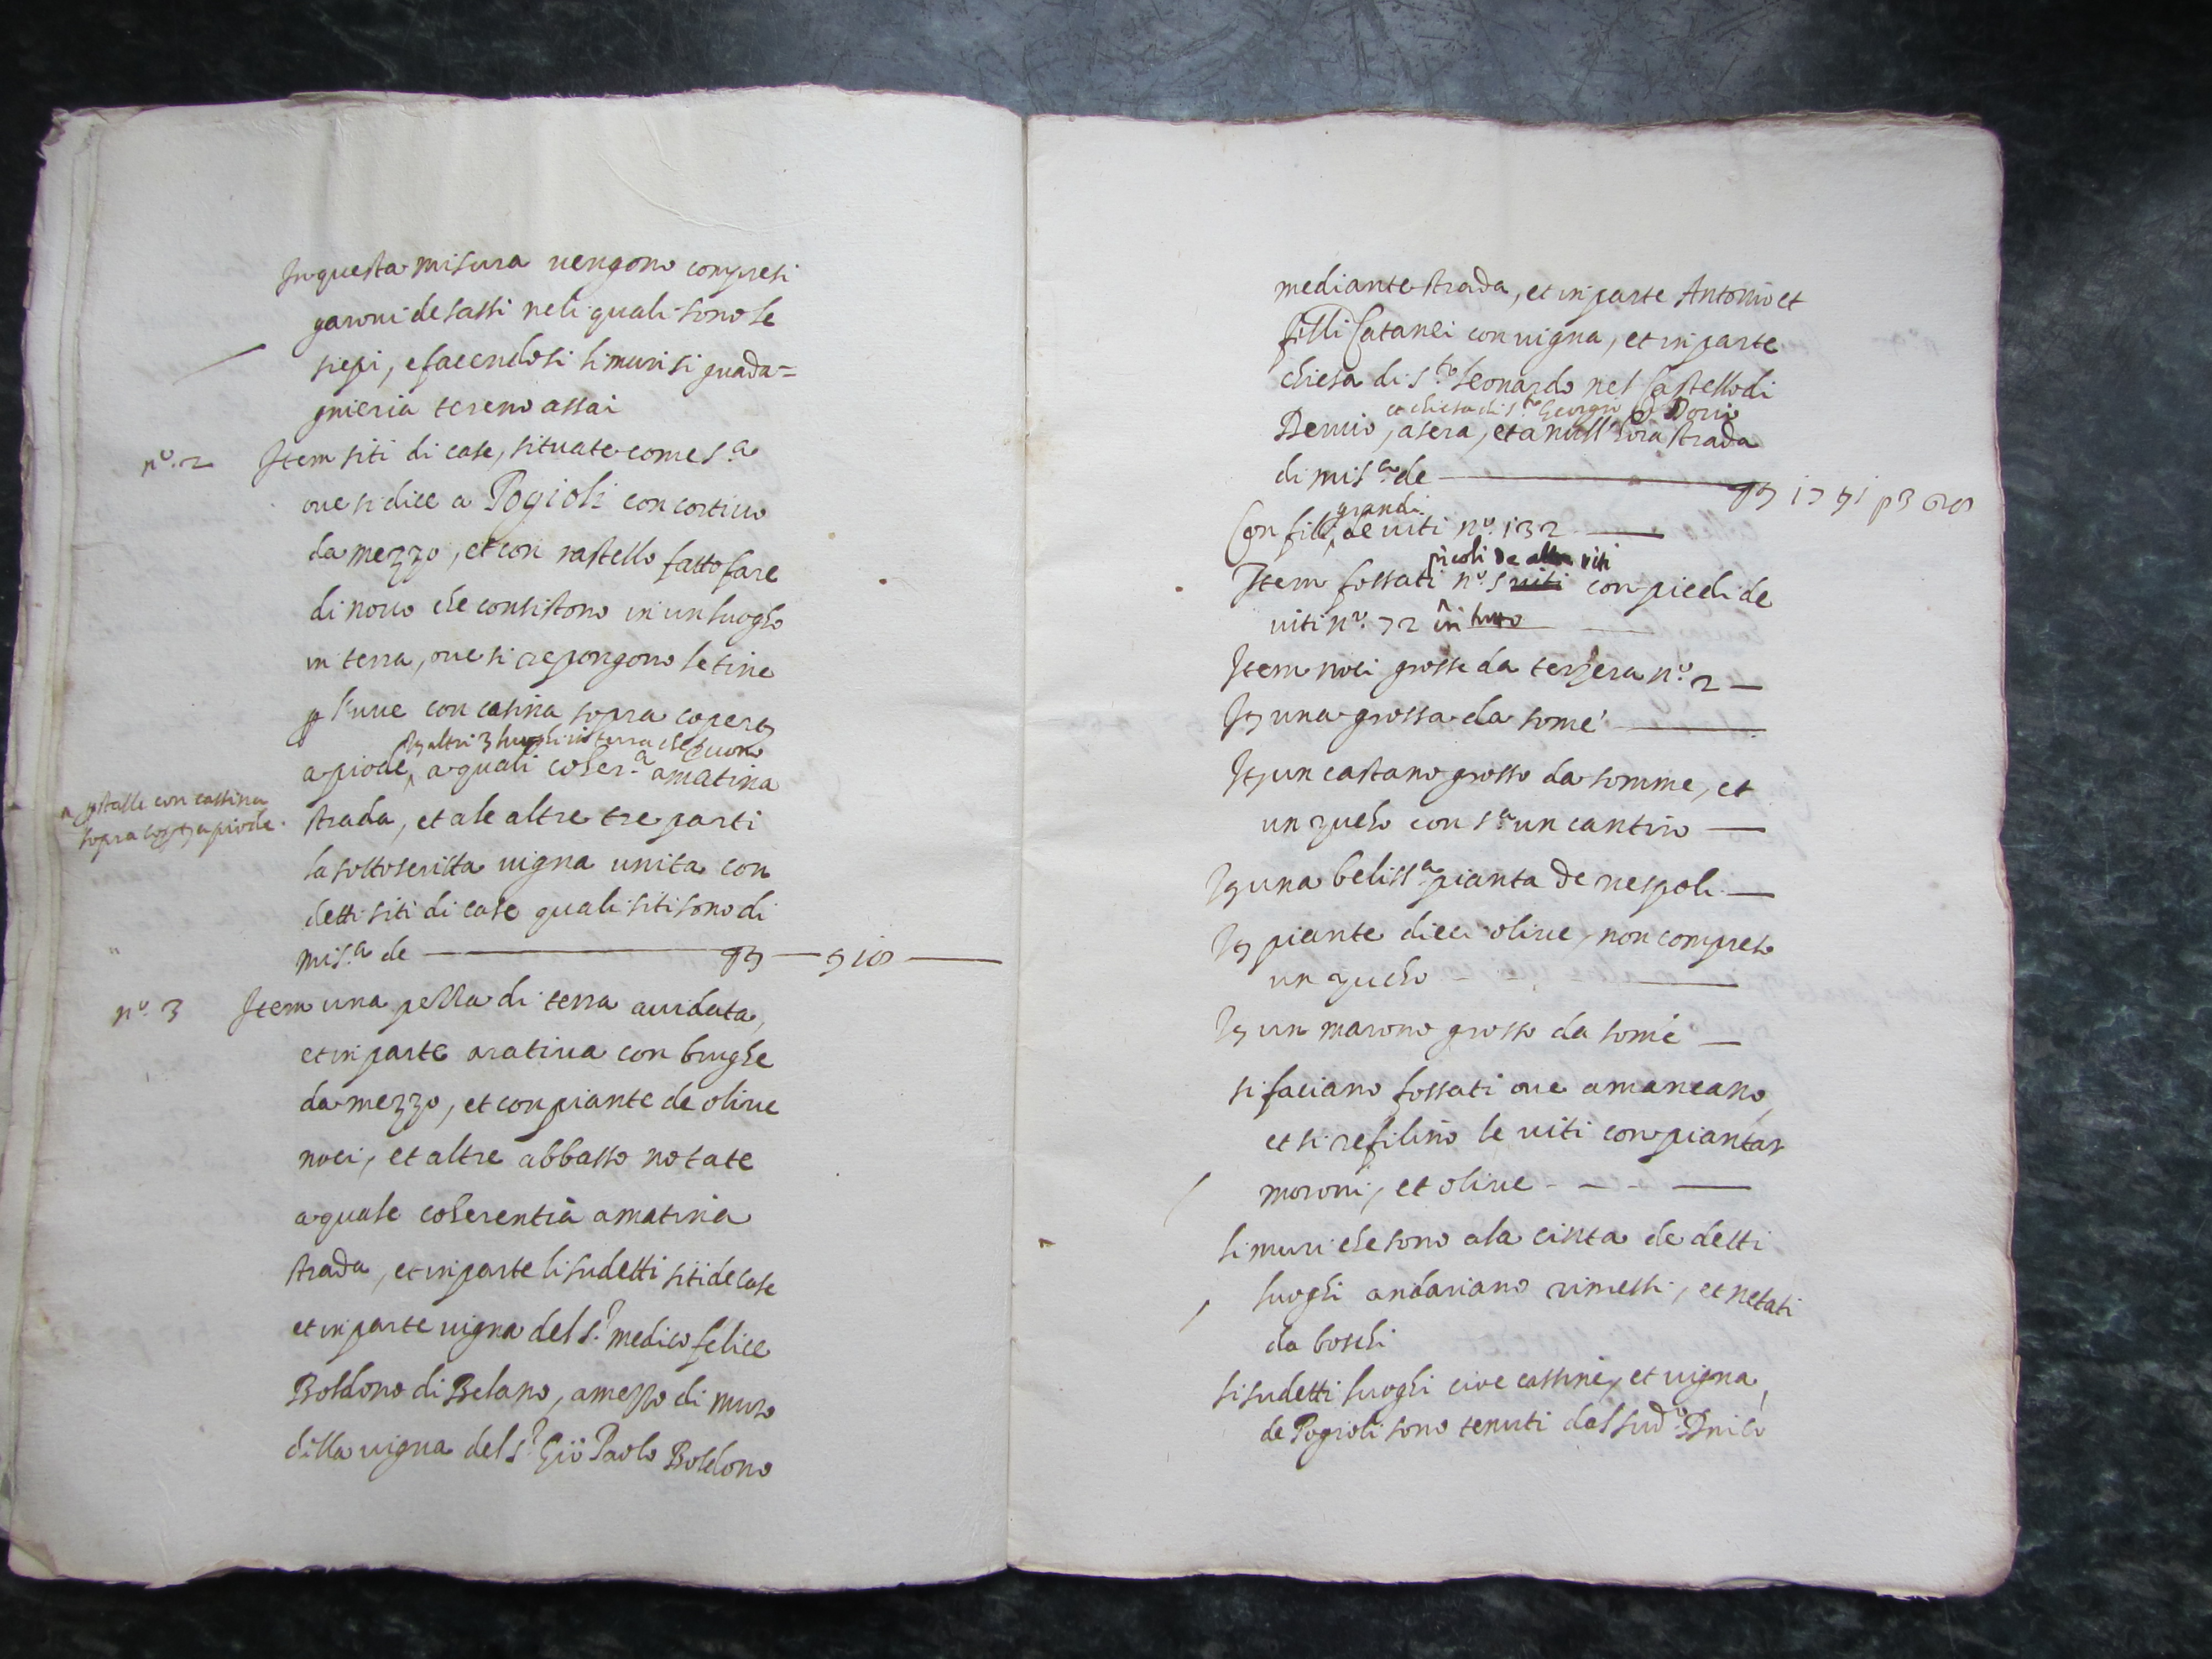 In questa misura uengono compresi
garoui de sassi neli quali sono le
siepi, e facendosi li muri si guada=
gnieria tereno assai
nº. 2 Item siti di case, situate come s.ª
oue si dice a Pogioli con cortiuo
da mezzo, et con rastello fatto fare
di nouo che consistono in un luogho
in terra, oue si repongono le tine
p l'uue con casina sopra coperta
altri 3 luoghi in terra che seruono
a piode, a quali coher.ª a matina
p stalle con cassina
sopra a piode.
strada, et ale altre tre parti
la sottoscritta uigna unita con
detti siti di case quali siti sono di
mis.ª de
nº. 3 Item una pezza di terra auidata,
et in parte aratiua con brughe
da mezzo, et con piante de oliue
noci, et altre abbasso notate
a quale coherentia a matina
strada, et in parte li sudetti siti de case
et in parte uigna del s.r medico felice
Boldono di Belano, a mezzo di muro
della uigna del s.r Gio Paolo Boldono
mediante strada, et in parte Antonio et
filli Catanei con uigna, et in parte
chiesa di s.to Leonardo nel Castello di
et chiesa di s.to Georgio Dorio
Deruio, a sera, et a null'hora strada
di mis.ª de
grandi
Con fili de uiti nº. 132
picoli de altre viti
Item fossati nº. 5 uiti con piedi de
uiti nº. 72 in tutto
Item noci grosse da terzera nº. 2
It una grossa da some
It un castano grosso da somme, et
un zucho con s.ª un cantiro
It una beliss.ª pianta de nespoli
It piante dieci oliue, non compreso
un zucho
It un marono grosso da some
si faciano fossati oue amancano,
et si refilino le uiti con piantar
moroni, et oliue
li muri che sono ala cinta de detti
luoghi andariano rimessi, et netati
da boschi
li sudetti luoghi cioe cassine, et uigna
de Pogioli sono tenuti dal sud.º